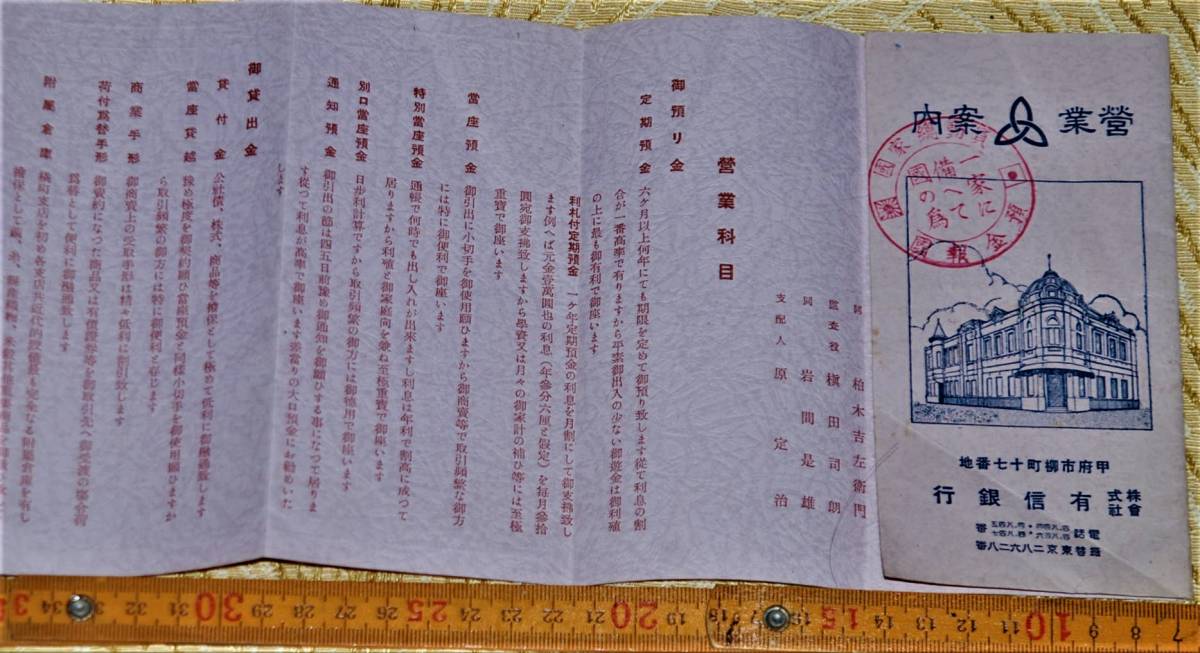 營業案內
一家に
備へて
國の爲
甲府市柳町十七番地
株式會社 有信銀行
電話
振替東京二八六二八番
同 柏木吉左衛門
監査役 槇田司朗
同 岩間是雄
支配人 原定治
營業科目
御預リ金
定期預金 六ケ月以上何年にても期限を定めて御預り致します從て利息の割
合が一番高率で有りますから平素御出入の少ない御遊金は御利殖
の上に最も御有利で御座います
利札付定期預金 一ケ年定期預金の利息を月割にして御支拂致し
ます例へば元金壹萬圓也の利息(年參分六厘と假定)を每月參拾
圓宛御支拂致しますから學資又は月々の御家計の補ひ等には至極
重寶で御座います
當座預金 御引出に小切手を御使用願ひますから御商賣等で取引頻繁な御方
には特に御便利で御座います
特別當座預金 通帳で何時でも出し入れが出來ますし利息は年利で割高に成つて
居りますから利殖と御家庭向を兼ね至極重寶で御座います
別口當座預金 日步利計算ですから取引頻繁の御方には御德用で御座います
通知預金 御引出の節は四五日前豫め御通知を御願ひする事になつて居りま
す從つて利息が高率で御座います差當りの大口預金にお勸めいた
します
御貸出金
貸付金 公社債、株式、商品等を擔保として極めて低利に御融通致します
當座貸越 豫め極度を御契約願ひ當座預金と同樣小切手を御使用願ひますか
ら取引頻繁の御方には特に御便利と存じます
商業手形 御商賣上の受取手形は精々低利に御割引致します
荷付爲替手形 御賣約になつた商品又は有價證券等を御取引先へ御受渡の場合荷
爲替として便利に御融通致します
附屬倉庫 橫町支店を初め各支店共近代的設備最も完全なる附屬倉庫を有し
擔保として繭、糸、
34 33 32 31 30 29 28 27 26 25 24 23 22 21 20 19 18 17 16 15 14 13 12 11 10 9 8 7